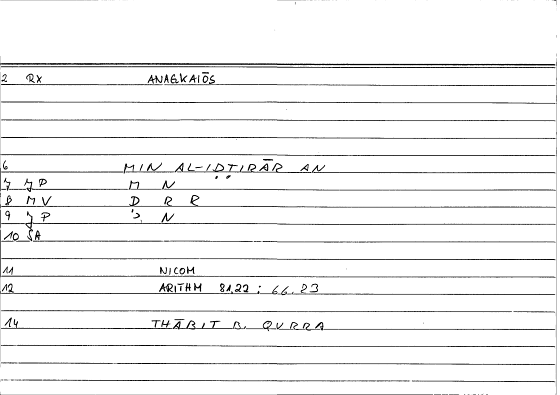 2 RX ANAGKAIŌS
6 MIN AL-IḌṬIRĀR AN
7 JP M N
8 MV Ḍ R R
9 JP ʾ N
10 SA
11 NICOM
12 ARITHM 81,22 : 66.23
14 THĀBIT B. QURRA